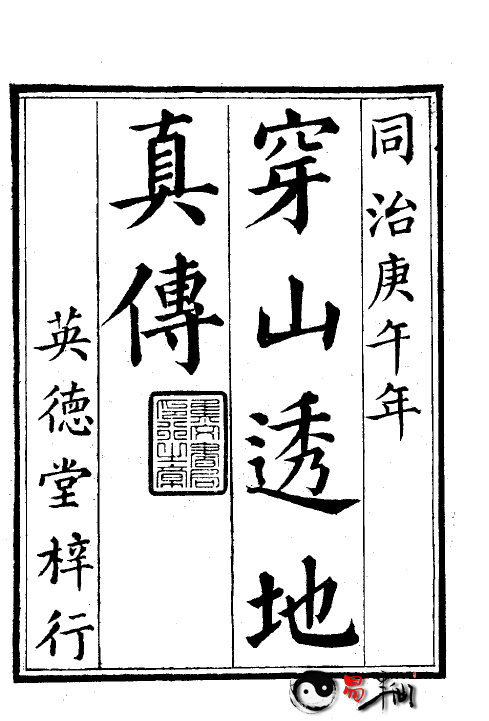 同治庚午年
穿山透地
真傳
英德堂梓行
易